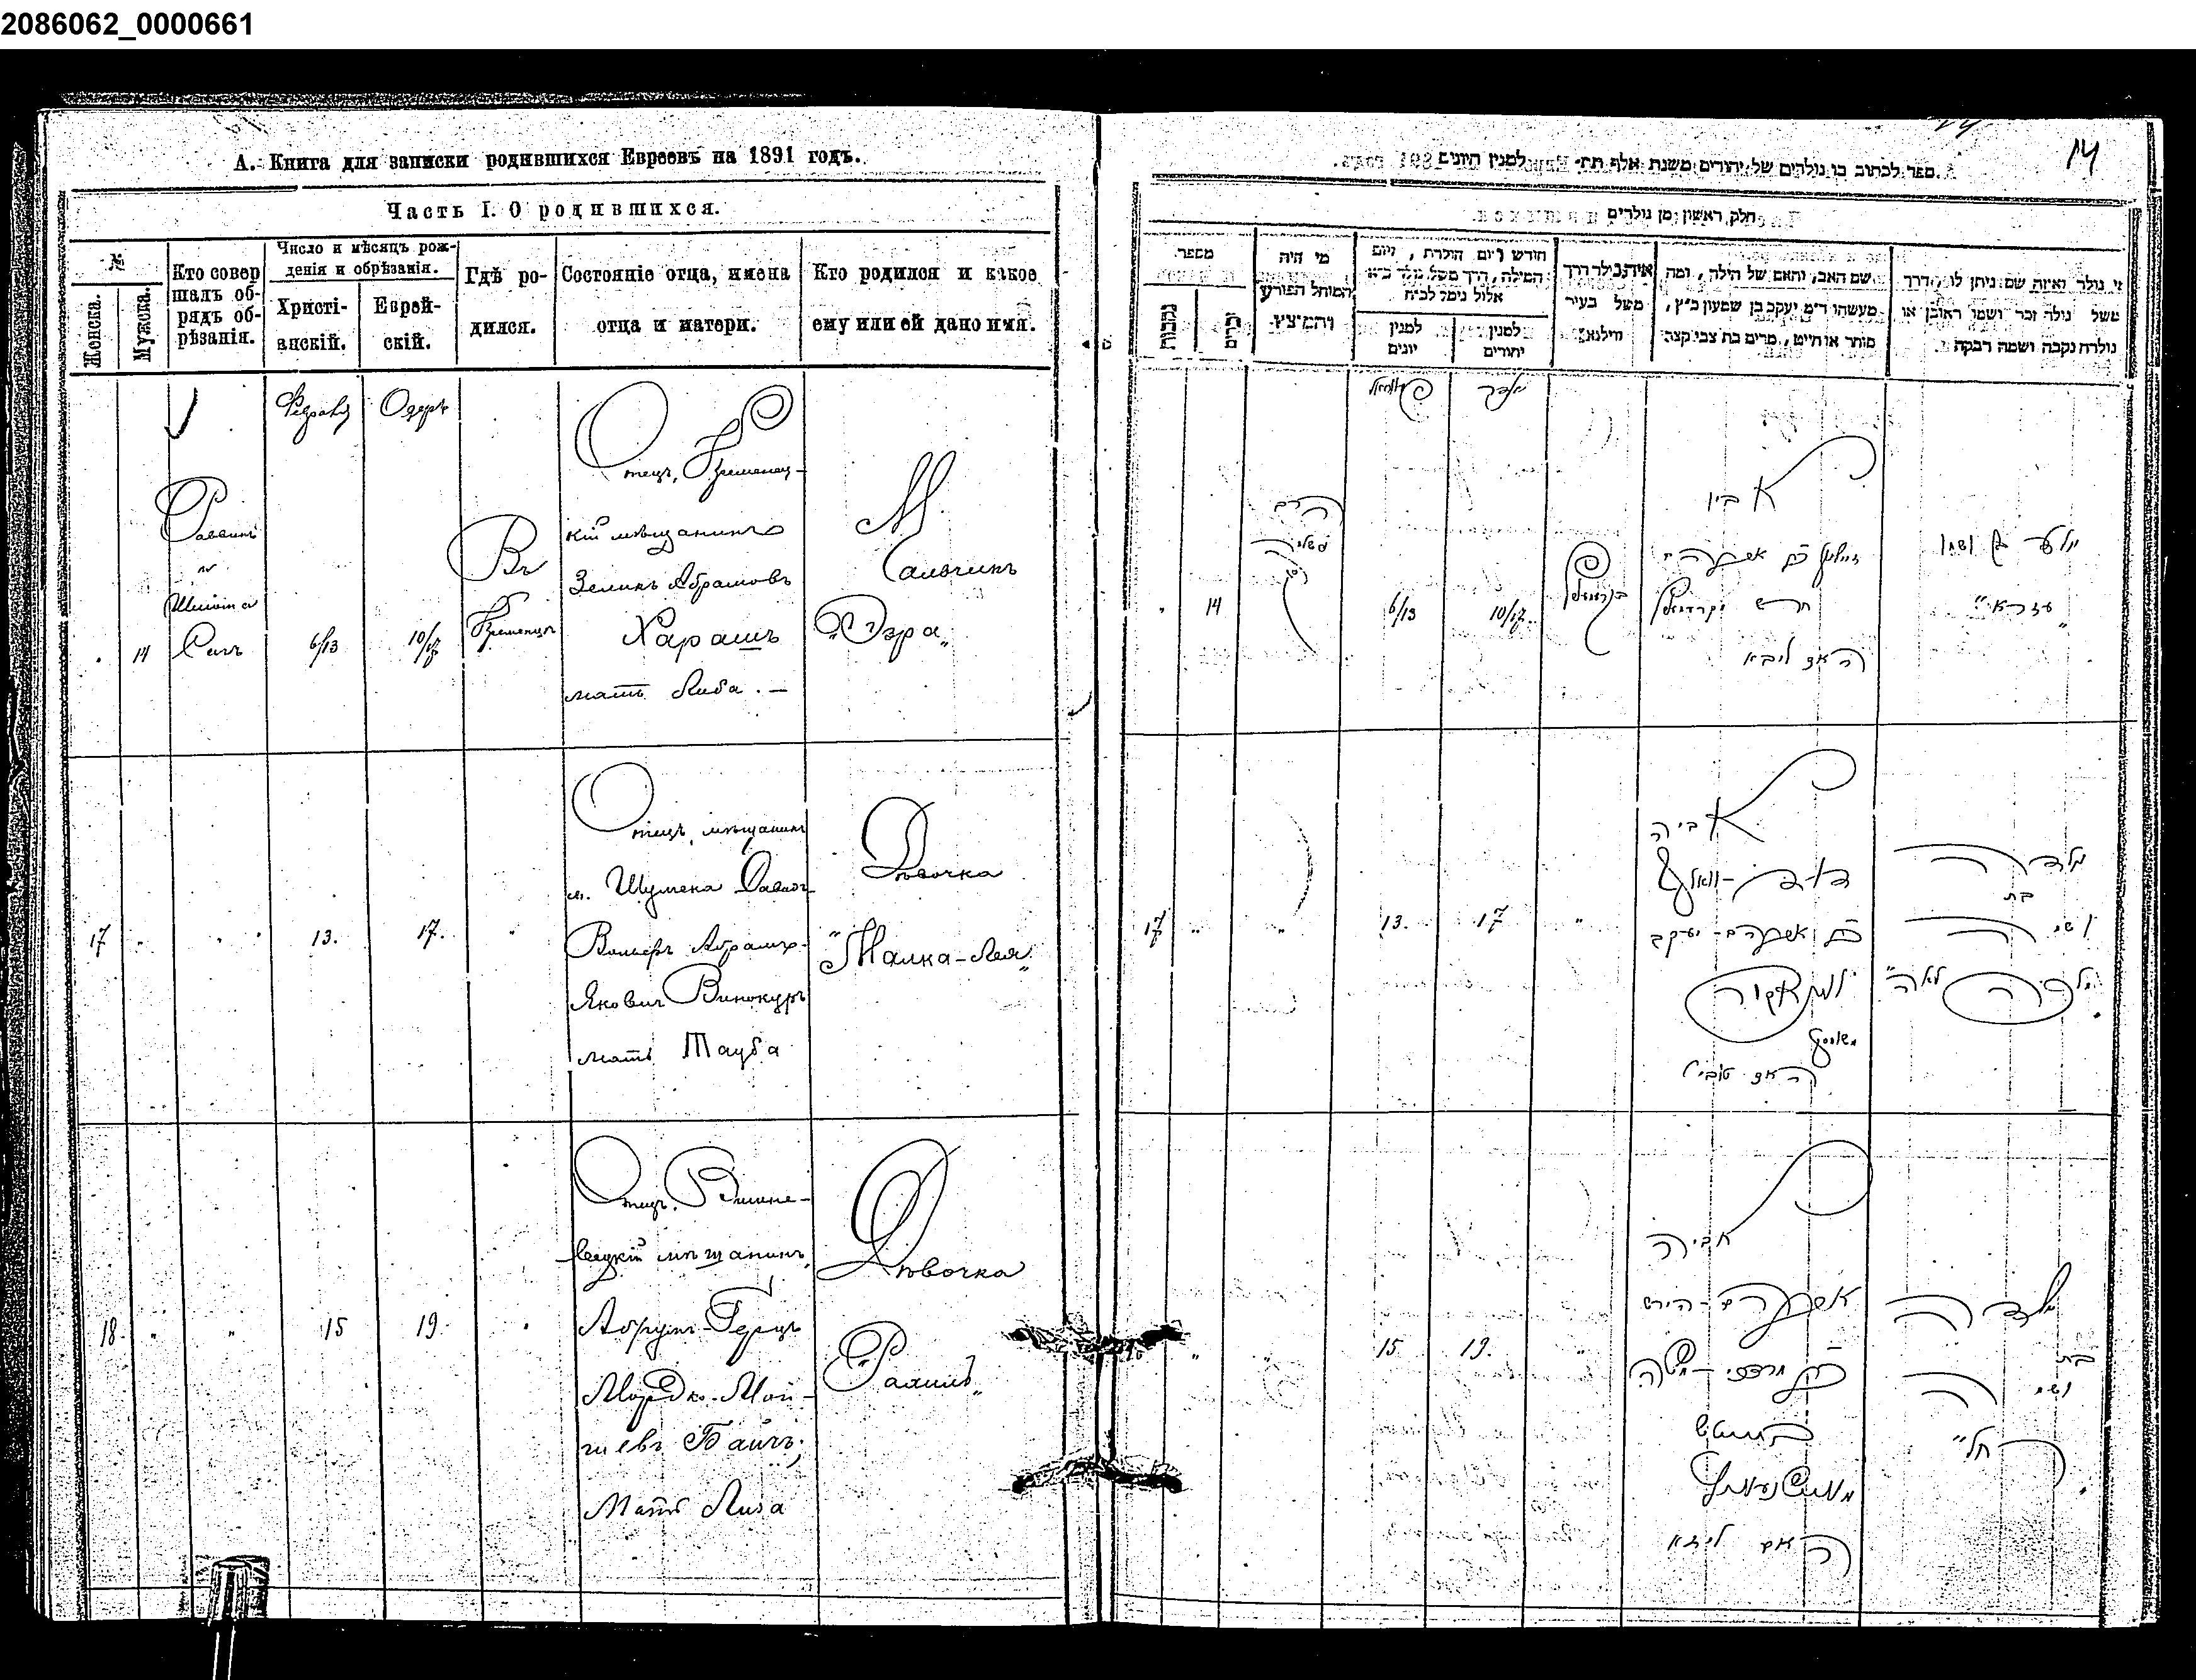 2086062_0000661
А. Книга для записки родившихся Евреевъ на 1891 годъ.
Часть I. О родившихся.
№
Женска.
Мужска.
Кто совер
шалъ об-
рядъ об-
рѣзанія.
Число и мѣсяцъ рож-
денія и обрѣзанія.
Христі-
анскій.
Еврей-
скій.
Гдѣ ро-
дился.
Состояніе отца, имена
отца и матери.
Кто родился и какое
ему или ей дано имя.
Февраль
Одеръ
Раввинъ
и
14
6/13
10/17
Въ
Кременцѣ
Отецъ, Кременец-
кій мѣщанинъ
Зеликъ Абрамовъ
Харашъ
мать Либа. —
Мальчикъ
"Эзра"
17
13.
17.
Отецъ, мѣщанинъ
м. Шумска Давид-
Вольфъ Абрамъ-
Яковичъ Винокуръ
мать Тауба
Дѣвочка
"Малка-Лея"
18
15
19
Отецъ, Вишне-
вецкій мѣщанинъ,
Абрумъ-Герцъ
Мордко-Мой-
шевъ
Мать Лиза
Дѣвочка
"Рахиль"
14
ספר לכתוב בו נולדים של יהודים משנת אלף תת״ למנין היונים
חלק ראשון מן נולדים
מספר
נקבות
זכרים
מי היה
המוהל הפורע
והמוצץ
חודש ויום הולדת, ויום
המילה, דרך משל נולד כ״א
אלול נימל לכ״ח
למנין
יונים
למנין
יהודים
איה נולד דרך
משל בעיר
ווילנא
שם האב, והאם של הילד, ומה
מעשהו ד״מ יעקב בן שמעון כ״ץ,
סוחר או חייט, מרים בת צבי קצב
מי נולד ואיזה שם ניתן לו הדרך
משל נולד זכר ושמו ראובן או
נולדה נקבה ושמה רבקה
אדר
14
6/13
10/17
אביו
האם ליבא
עזרא"
17
13.
17
אביה
דוד-וואלף
אברהם-יעקב
האם
נולדה
בת
ושמה
מלכה לאה"
15
19.
אביה
אברהם-הירש
מרדכי-משה
האם ליזא
נולדה
בת
ושמה
רחל"